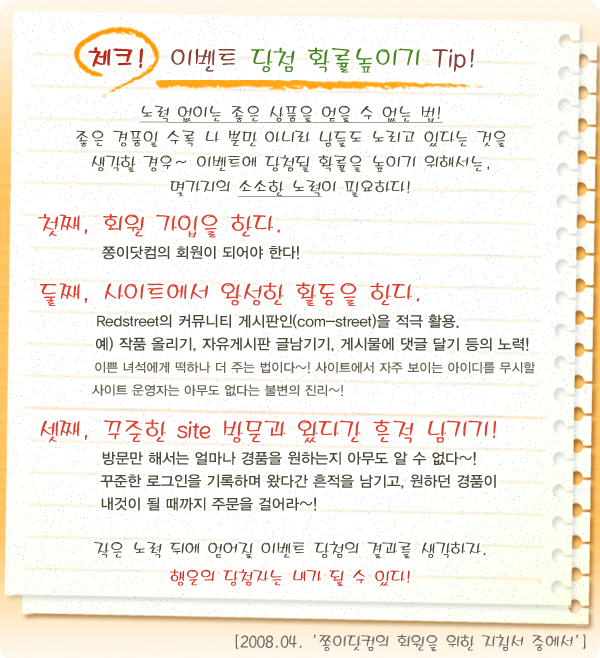 체크! 이벤트 당첨 확률높이기 Tip!
노력 없이는 좋은 상품을 얻을 수 없는 법!
좋은 경품일 수록 나 뿐만 아니라 남들도 노리고 있다는 것을
생각할 경우~ 이벤트에 당첨될 확률을 높이기 위해서는,
몇가지의 소소한 노력이 필요하다!
첫째, 회원 가입을 한다.
쫑이닷컴의 회원이 되어야 한다!
둘째, 사이트에서 왕성한 활동을 한다.
Redstreet의 커뮤니티 게시판인(com-street)을 적극 활용.
예) 작품 올리기, 자유게시판 글남기기, 게시물에 댓글 달기 등의 노력!
이쁜 녀석에게 떡하나 더 주는 법이다~! 사이트에서 자주 보이는 아이디를 무시할
사이트 운영자는 아무도 없다는 불변의 진리~!
셋째, 꾸준한 site 방문과 왔다간 흔적 남기기!
방문만 해서는 얼마나 경품을 원하는지 아무도 알 수 없다~!
꾸준한 로그인을 기록하며 왔다간 흔적을 남기고, 원하던 경품이
내것이 될 때까지 주문을 걸어라~!
작은 노력 뒤에 얻어질 이벤트 당첨의 결과를 생각하자.
행운의 당첨자는 내가 될 수 있다!
[2008.04. '쫑이닷컴의 회원을 위한 지침서 중에서']